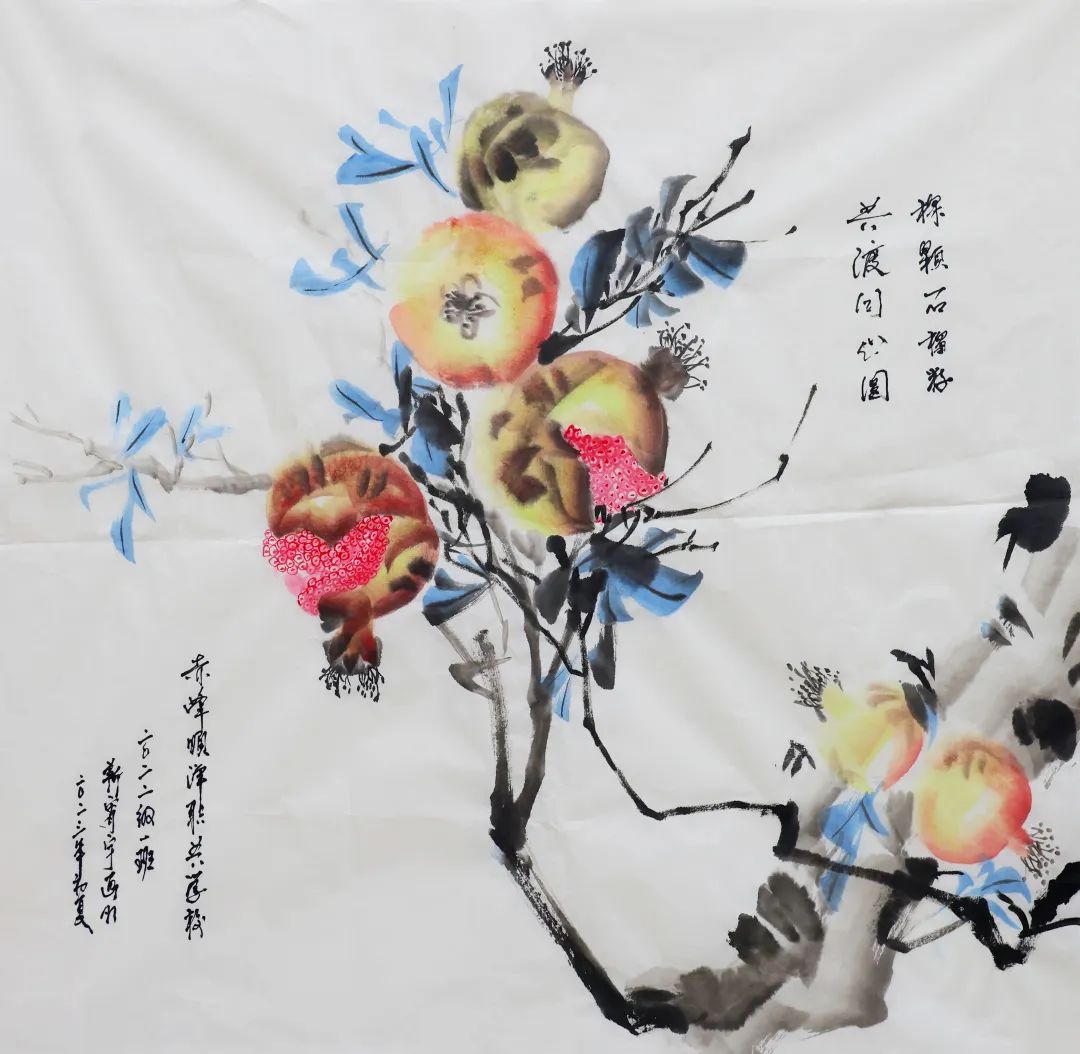 棵颗石榴籽
共渡同心圆
赤峰顺泽职业学校
二〇二二级一班
宇画
二〇二三年初夏